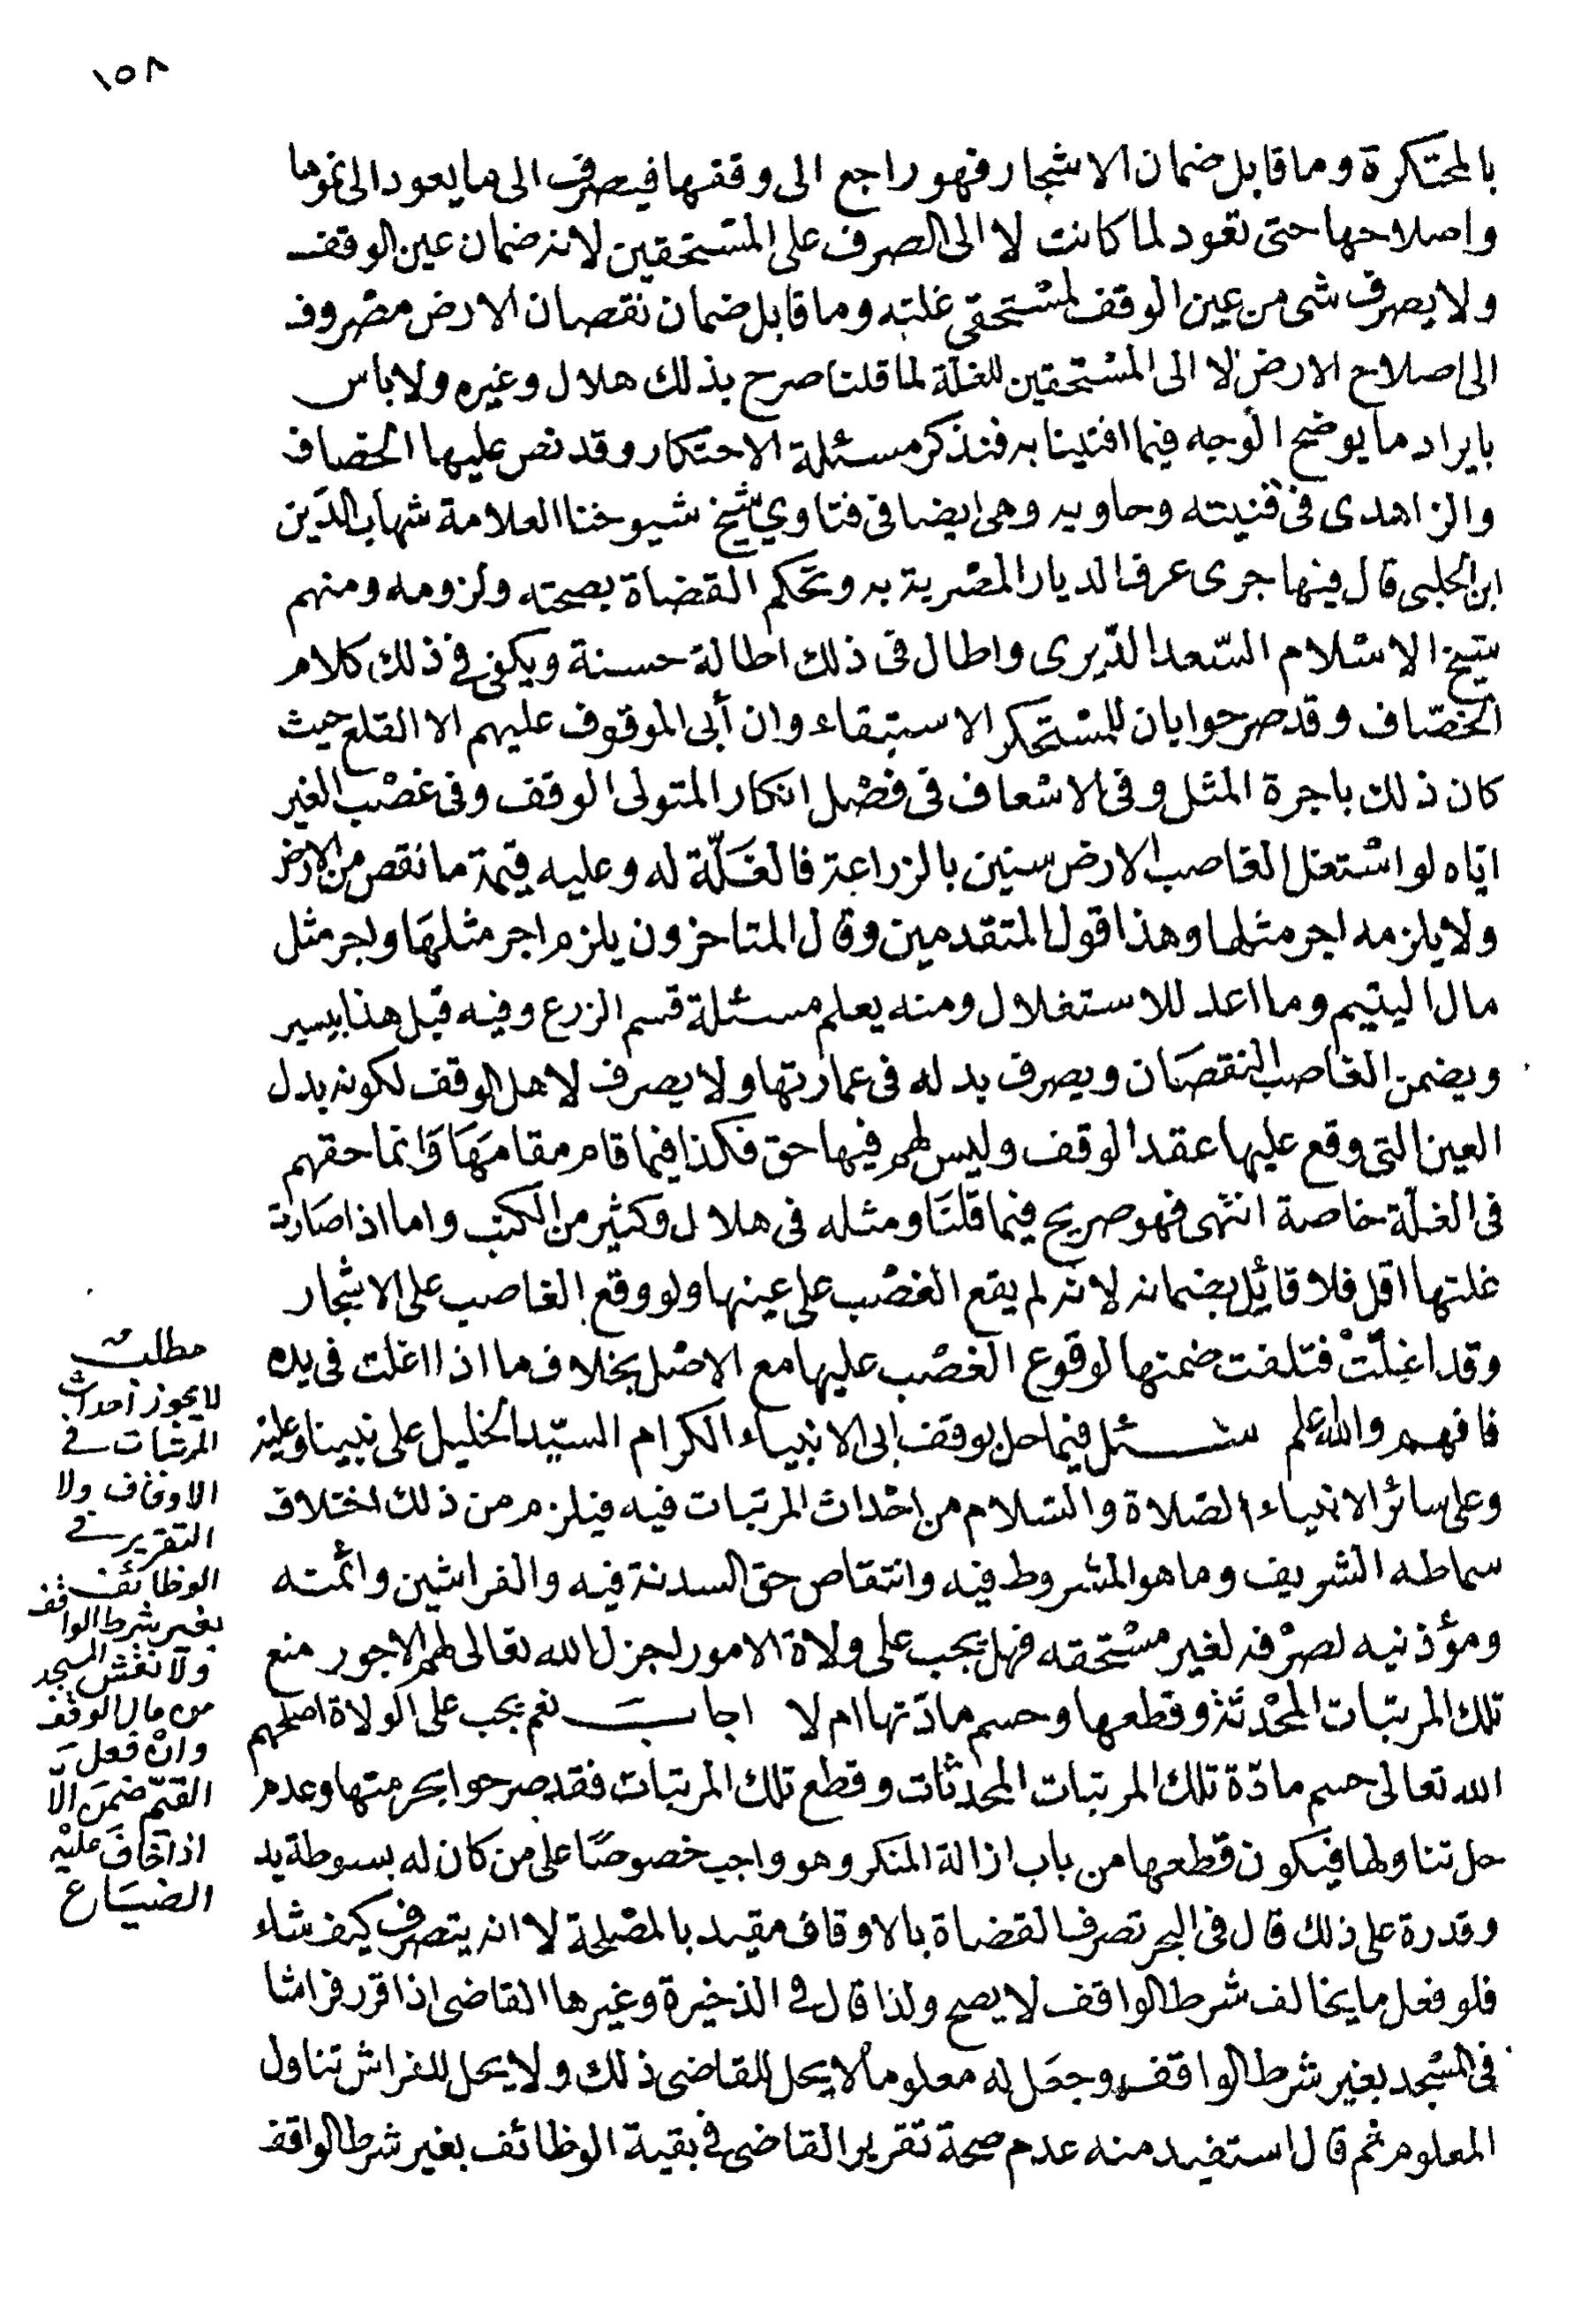 ١٥٨
بالمحتكرة وما قابل ضمان الاشجار فهو راجع الى وقفها فيصرف الى ما يعود الى نموها
واصلاحها حتى تعود لما كانت لا الى الصرف على المستحقين لانه ضمان عين الوقف
ولا يصرف شى من عين الوقف لمستحقى غلته وما قابل ضمان نقصان الارض مصروف
الى اصلاح الارض لا الى المستحقين للغلة لما قلنا صرح بذلك هلال وغيره ولا باس
بايراد ما يوضح الوجه فيما افتينا به فنذكر مسئلة الاحتكار وقد نص عليها الخصاف
والزاهدى فى قنيته وحاويه وهى ايضا فى فتاوي شيخ شيوخنا العلامة شهاب الدين
ابن الحلبى قال فيها جرى عرف الديار المصرية به وتحكم القضاة بصحته ولزومه ومنهم
شيخ الاسلام السّعد الدّيرى واطال فى ذلك اطالة حسنة ويكفى فى ذلك كلام
الخصّاف وقد صرحوا بان للمستحكر الاستبقاء وان أبى الموقوف عليهم الا القلع حيث
كان ذلك باجرة المثل وفى الاسعاف فى فصل انكار المتولى الوقف وفى غصب الغير
اياه لو استغل الغاصب الارض سنين بالزراعة فالغلّة له وعليه قيمة ما نقص من الارض
ولا يلزمه اجر مثلها وهذا قول المتقدمين وقال المتاخرون يلزم اجر مثلها واجر مثل
مال اليتيم وما اعد للاستغلال ومنه يعلم مسئلة قسم الزرع وفيه قبل هذا بيسير
ويضمن الغاصب النقصان ويصرف بدله فى عمارتها ولا يصرف لاهل الوقف لكونه بدل
العين التى وقع عليها عقد الوقف وليس لهم فيها حق فكذا فيما قام مقامها وانما حقهم
فى الغلّة خاصة انتهى فهو صريح فيما قلنا ومثله فى هلال وكثير من الكتب واما اذا صارت
غلتها اقل فلا قائل بضمانه لانه لم يقع الغصب على عينها ولو وقع الغاصب على الاشجار
وقد اغلّت فتلفت ضمنها لوقوع الغصب عليها مع الاصل بخلاف ما اذا اغلت فى يده
فافهم والله اعلم سئل فيما حل بوقف ابى الانبياء الكرام السيّد الخليل على نبينا وعليه
وعلى سائر الانبياء الصلاة والسلام من احداث المرتبات فيه فيلزم من ذلك اختلاف
سماطه الشريف وما هو المشروط فيه وانتقاص حق السدنة فيه والفراشين وائمته
ومؤذنيه لصرفه لغير مستحقه فهل يجب على ولاة الامور اجزل الله تعالى لهم الاجور منع
تلك المرتبات المحدثة وقطعها وحسم مادّتها ام لا اجاب نعم يجب على الولاة اصلحهم
الله تعالى حسم مادّة تلك المرتبات المحدثات وقطع تلك المرتبات فقد صرحوا بحرمتها وعدم
حل تناولها فيكون قطعها من باب ازالة المنكر وهو واجب خصوصًا على من كان له بسوطة يد
وقدرة على ذلك قال فى البحر تصرف القضاة بالاوقاف مقيد بالمصلحة لا انه يتصرف كيف شاء
فلو فعل ما يخالف شرط الواقف لا يصح ولذا قال فى الذخيرة وغيرها القاضى اذا قرر فراشا
فى المسجد بغير شرط الواقف وجعل له معلوما لا يحل للقاضى ذلك ولا يحل للفراش تناول
المعلوم ثم قال استفيد منه عدم صحة تقرير القاضى فى بقية الوظائف بغير شرط الواقف
مطلب
لا يجوز احداث
المرتبات فى
الاوقاف ولا
التقرير فى
الوظائف
بغير شرط الواقف
ولا نقش المسجد
من مال الوقف
وان فعل
القيّم ضمن الّا
اذا خاف عليه
الضياع